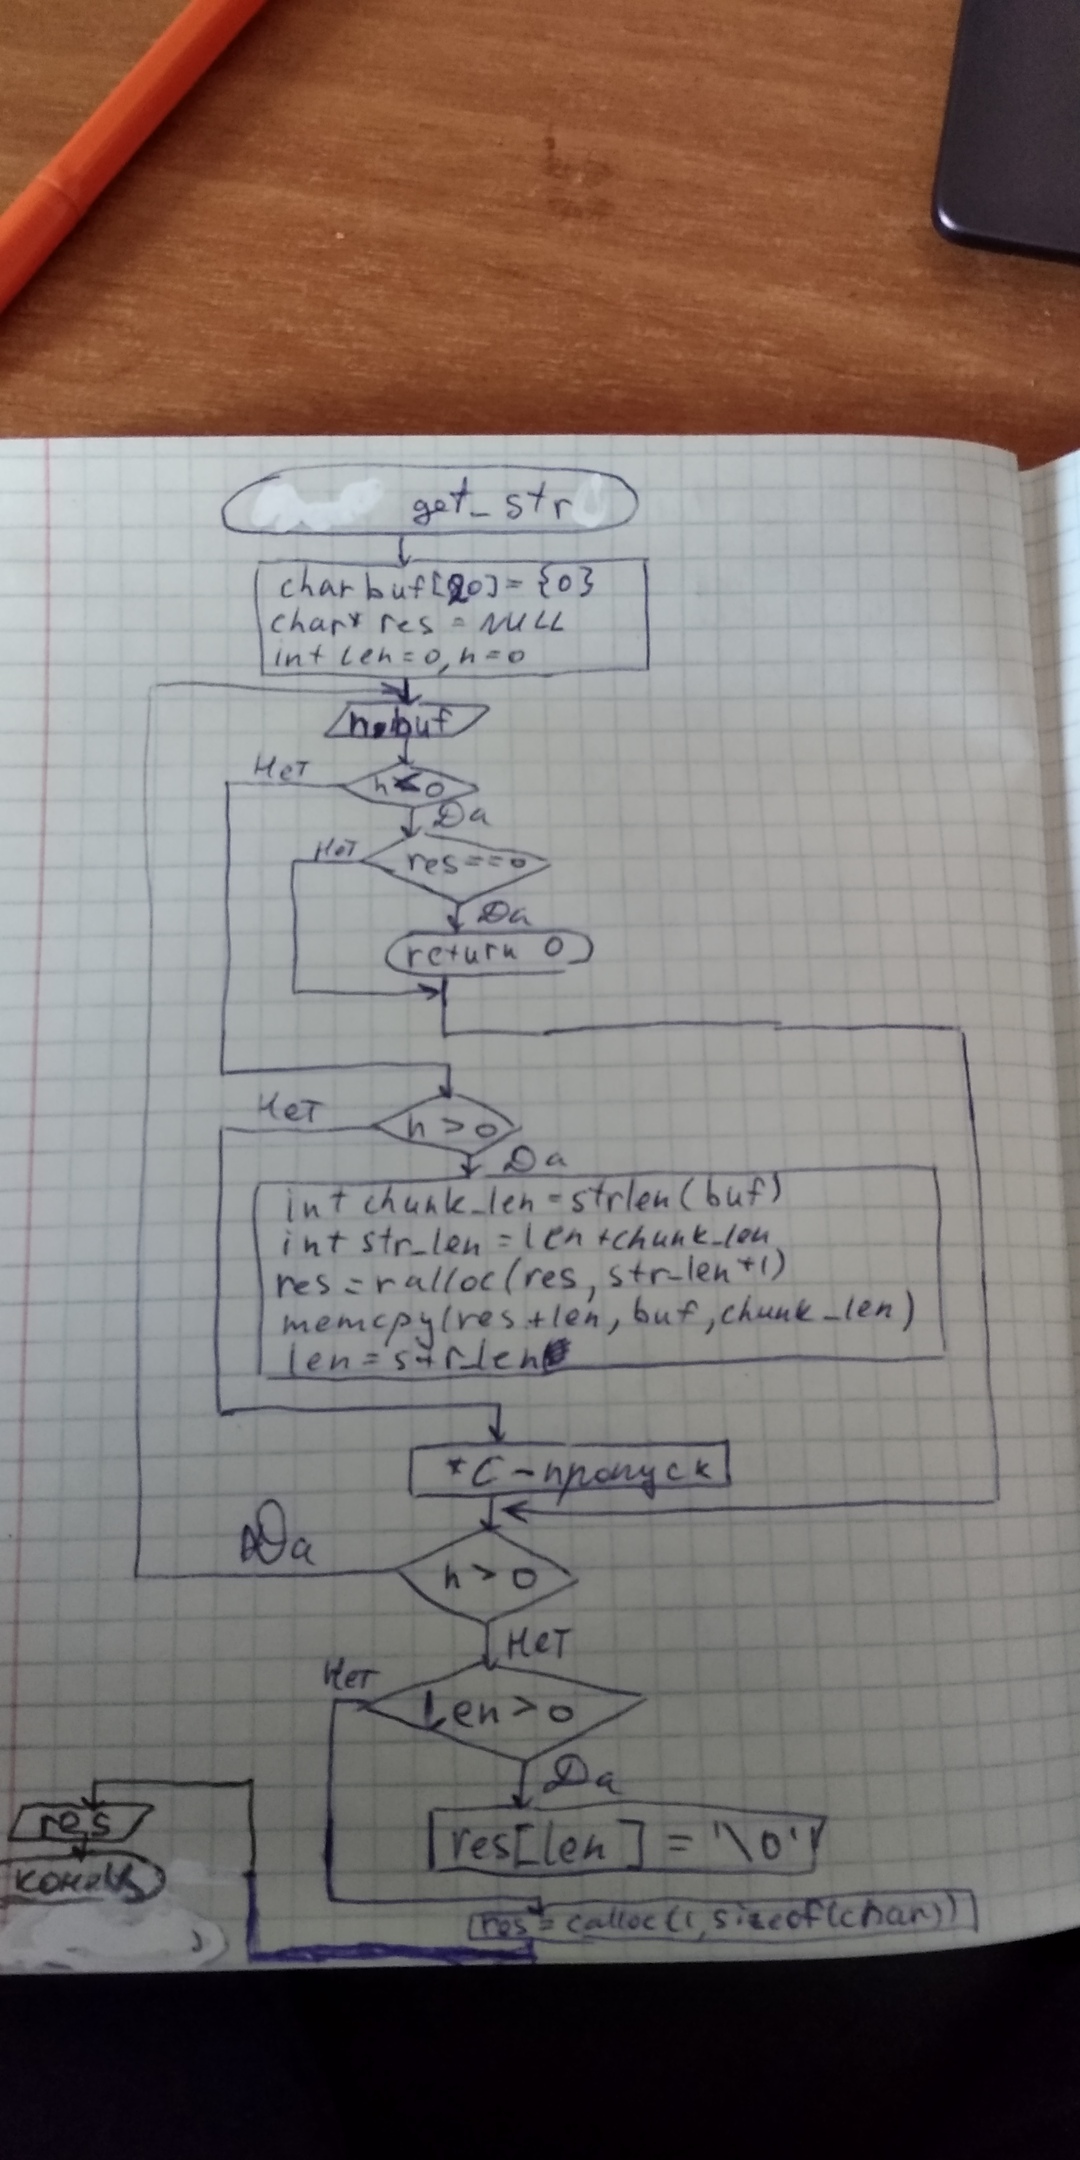 get_str
char buf[20] = {0}
char* res = NULL
int len=0, n=0
n, buf
Нет
n<0
Да
Нет
res==0
Да
return 0
Нет
n > 0
Да
int chunk_len=strlen(buf)
int str_len = len+chunk_len
res = ralloc(res, str_len+1)
memcpy(res+len, buf, chunk_len)
len = str_len
*C - пропуск
Да
n > 0
Нет
Нет
Len > 0
Да
res[len] = '\0'
res
конец
res = calloc(1, sizeof(char))